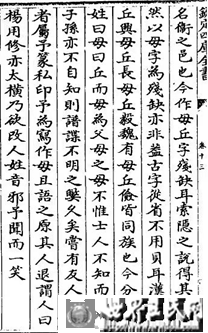 欽定四庫全書
卷十三
名衛之邑也今作毋丘字殘缺耳索隱之說得其
然以毋字為殘缺亦非蓋古字從省不用貝耳漢
丘興毋丘長毋丘毅魏有毋丘儉皆同族也今分
姓曰毋曰丘而毋為父母之母不惟士人不知而
子孫亦不自知則譜諜不明之獘久矣嘗有友人
者屬予篆私印予為寫作毋且語之原其人退謂人曰
楊用修亦太橫乃欲改人姓音邪予聞而一笑